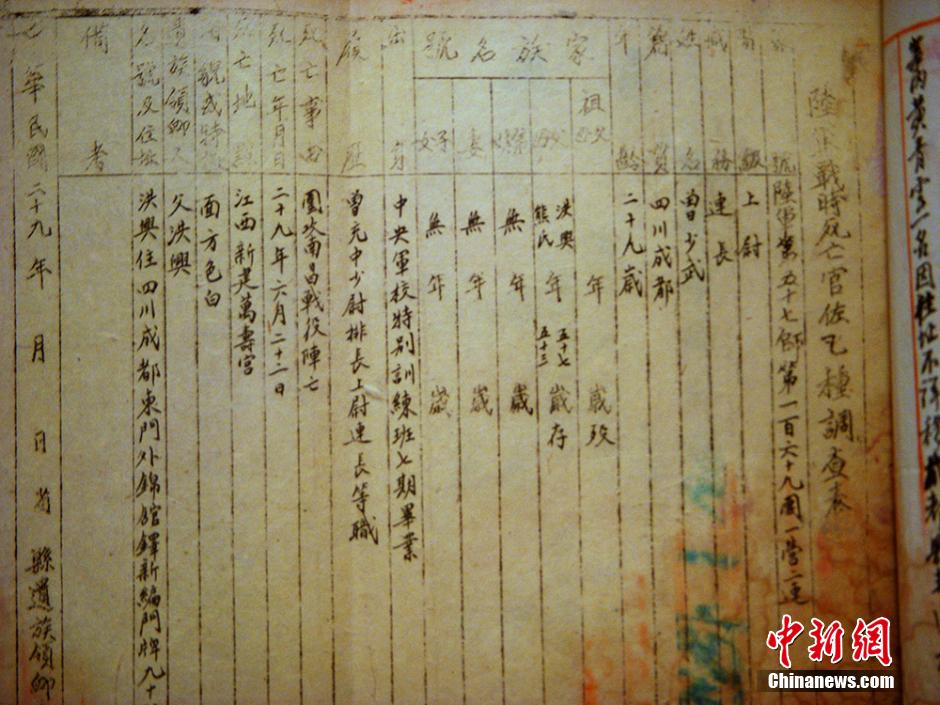 黃青雲一名因住址不詳
陸軍戰時死亡官佐乙種調查表
號 陸軍第五十七師第一百六十九團一營二連
級 上尉
職務 連長
姓名 曾少武
籍貫 四川成都
年齡 二十九歲
家族名號
祖父母 年 歲歿
父母 洪興 熊氏 年 五十七 五十三 歲存
無 年 歲
妻 無 年 歲
子女 無 年 歲
出身 中央軍校特別訓練班七期畢業
履歷 曾充中少尉排長上尉連長等職
死亡事由 圍攻南昌戰役陣亡
死亡年月日 二十九年六月二十二日
死亡地點 江西新建萬壽宮
面方色白
遺族領卹人 父洪興
名號及住址 洪興住四川成都東門外錦官驛新編門牌九十
備考
中華民國二十九年 月 日 省 縣遺族領卹
中新網
Chinanews.com